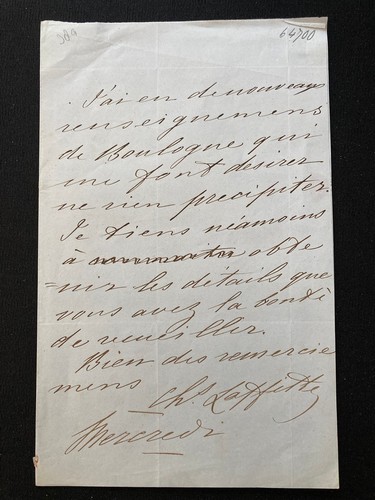 J'ai eu de nouveaux
renseignemens
de Boulogne qui
me font désirer
ne rien précipiter.
Je tiens néamoins
à obte
=nir les détails que
vous avez la bonté
de recueiller.
Bien des remercie
mens
Chs Laffitte
Mercredi
64700